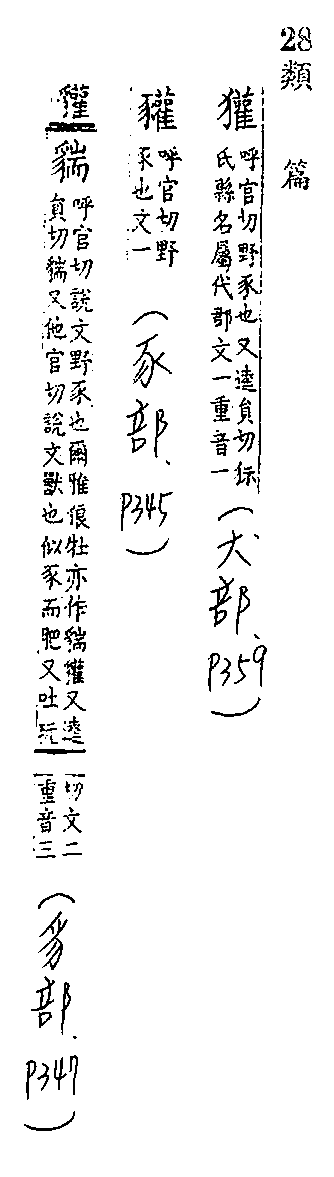 28類篇
獾 呼官切野豕也又逵員切𤝞
氏縣名屬代郡文一重音一 (犬部、P359)
豲 呼官切野
豕也文一 (豕部、P345)
貛
貒 呼官切說文野豕也爾雅狼牡亦作貒貛又逵
員切貒又他官切說文獸也似豕而肥又吐玩
切文二
重音三 (豸部、P347)